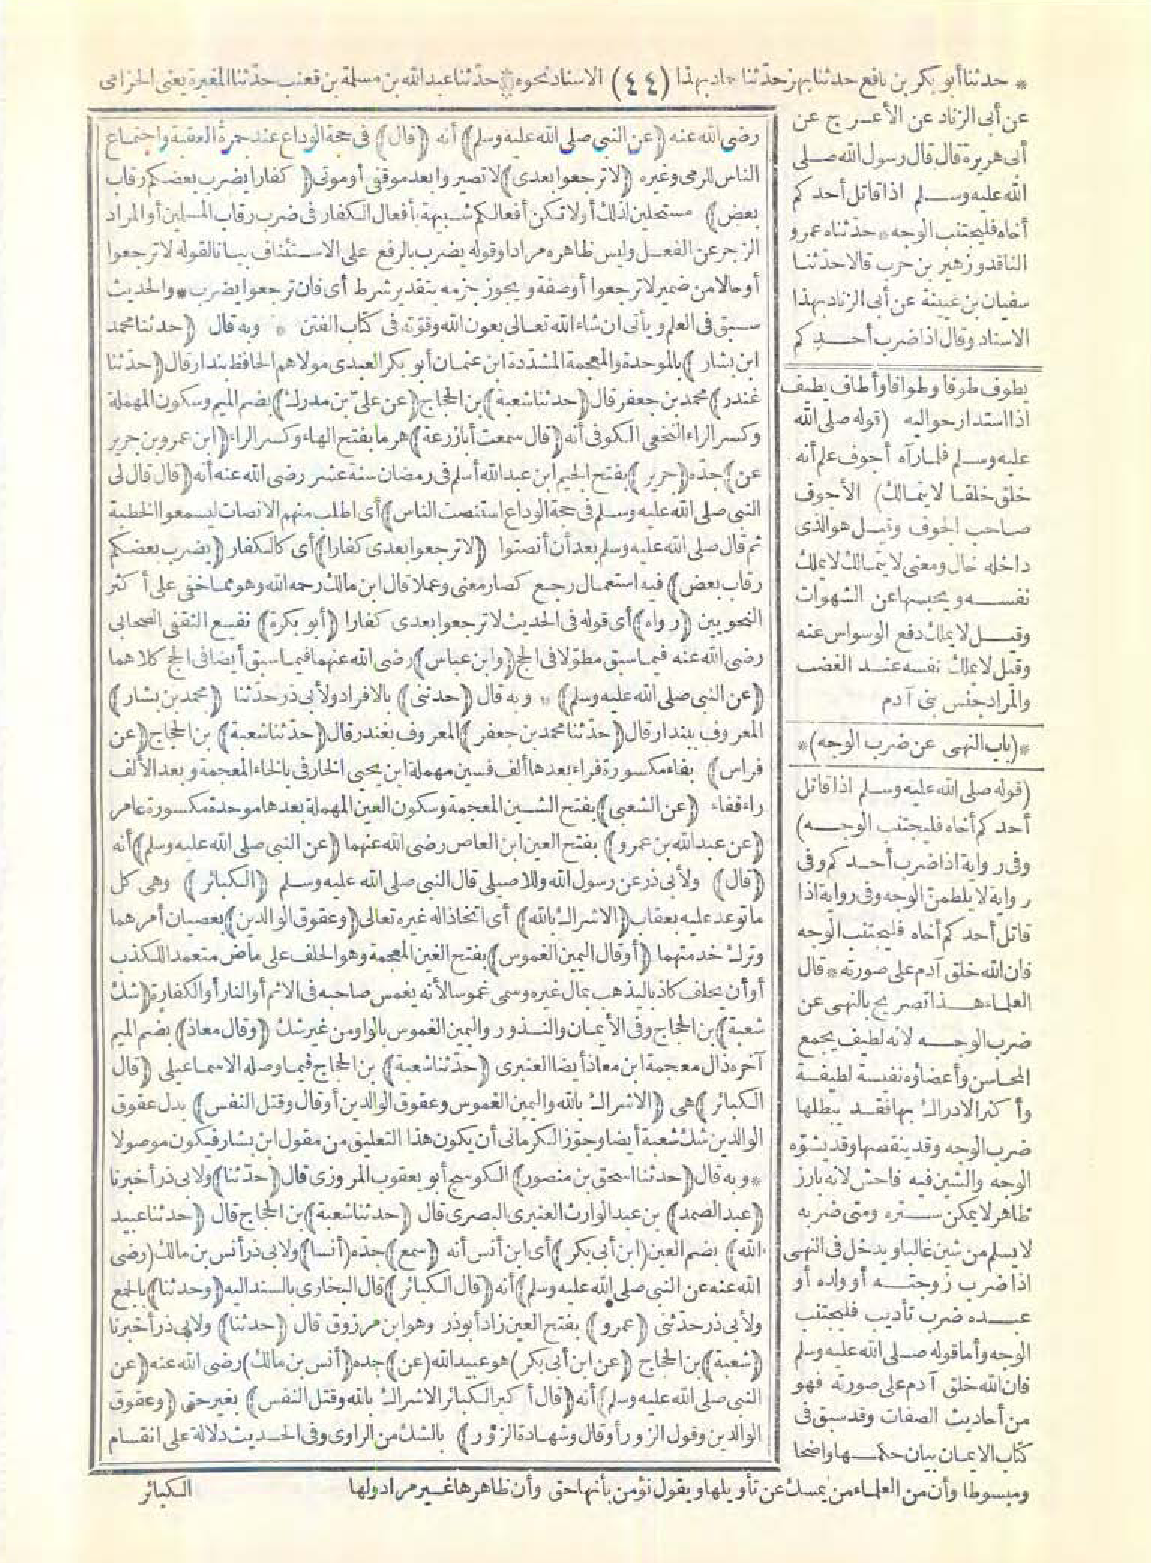 * حدثنا أبو بكر بن نافع حدثنا بهز حدثنا حماد بهذا (٤٤) الاسناد نحوه * حدثنا عبد الله بن مسلمة بن قعنب حدثنا المغيرة يعنى الحزامى
عن أبى الزناد عن الأعرج عن
أبى هريرة قال قال رسول الله صلى
الله عليه وسلم اذا قاتل أحدكم
أخاه فليجتنب الوجه * حدثناه عمرو
الناقد وزهير بن حرب قالا حدثنا
سفيان بن عيينة عن أبى الزناد بهذا
الاسناد وقال اذا ضرب أحدكم
يطوف طوفا وطوافا وأطاف يطيف
اذا استدار حواليه (قوله صلى الله
عليه وسلم فلما رآه أجوف علم أنه
خلق خلقا لا يتمالك) الأجوف
صاحب الجوف وقيل هو الذى
داخله خال ومعنى لا يتمالك لا يملك
نفسه ويحبسها عن الشهوات
وقيل لا يملك دفع الوسواس عنه
وقيل لا يملك نفسه عند الغضب
والمراد جنس بنى آدم
*(باب النهى عن ضرب الوجه)*
(قوله صلى الله عليه وسلم اذا قاتل
أحدكم أخاه فليجتنب الوجه)
وفى رواية اذا ضرب أحدكم وفى
رواية لا يلطمن الوجه وفى رواية اذا
قاتل أحدكم أخاه فليجتنب الوجه
فان الله خلق آدم على صورته * قال
العلماء هذا تصريح بالنهى عن
ضرب الوجه لانه لطيف يجمع
المحاسن وأعضاؤه نفيسة لطيفة
وأكثر الادراك بها فقد يبطلها
ضرب الوجه وقد ينقصها وقد يشوه
الوجه والشين فيه فاحش لانه بارز
ظاهر لا يمكن ستره ومتى ضربه
لا يسلم من شين غالبا ويدخل فى النهى
اذا ضرب زوجته أو ولده أو
عبده ضرب تأديب فليجتنب
الوجه وأما قوله صلى الله عليه وسلم
فان الله خلق آدم على صورته فهو
من أحاديث الصفات وقد سبق فى
كتاب الايمان بيان حكمها واضحا
ومبسوطا وأن من العلماء من يمسك عن تأويلها ويقول نؤمن بأنها حق وأن ظاهرها غير مراد ولها
رضى الله عنه (عن النبى صلى الله عليه وسلم) أنه (قال) فى حجة الوداع عند جمرة العقبة واجتماع
الناس للرمى وغيره (لا ترجعوا بعدى) لا تصيروا بعد موقفى أو موتى (كفارا يضرب بعضكم رقاب
بعض) مستحلين لذلك أو لا تكن أفعالكم شبيهة بأفعال الكفار فى ضرب رقاب المسلمين أو المراد
الزجر عن الفعل وليس ظاهره مرادا وقوله يضرب بالرفع على الاستئناف بيانا لقوله لا ترجعوا
أو حالا من ضمير لا ترجعوا أو صفة ويجوز جزمه بتقدير شرط أى فان ترجعوا يضرب * والحديث
سبق فى العلم ويأتى ان شاء الله تعالى بعون الله وقوته فى كتاب الفتن * وبه قال (حدثنا محمد
ابن بشار) بالموحدة والمعجمة المشددة ابن عثمان أبو بكر العبدى مولاهم الحافظ بندار قال (حدثنا
غندر) محمد بن جعفر قال (حدثنا شعبة) بن الحجاج (عن على بن مدرك) بضم الميم وسكون المهملة
وكسر الراء النخعى الكوفى أنه (قال سمعت أبا زرعة) هرما بفتح الهاء وكسر الراء (ابن عمرو بن جرير
عن) جده (جرير) بفتح الجيم ابن عبد الله أسلم فى رمضان سنة عشر رضى الله عنه أنه (قال قال لى
النبى صلى الله عليه وسلم فى حجة الوداع استنصت الناس) أى اطلب منهم الانصات ليسمعوا الخطبة
ثم قال صلى الله عليه وسلم بعد أن أنصتوا (لا ترجعوا بعدى كفارا) أى كالكفار (يضرب بعضكم
رقاب بعض) فيه استعمال رجع كصار معنى وعملا قال ابن مالك رحمه الله وهو مما خفى على أكثر
النحويين (رواه) أى قوله فى الحديث لا ترجعوا بعدى كفارا (أبو بكرة) نفيع الثقفى الصحابى
رضى الله عنه فيما سبق مطولا فى الحج (وابن عباس) رضى الله عنهما فيما سبق أيضا فى الحج كلاهما
(عن النبى صلى الله عليه وسلم) * وبه قال (حدثنى) بالافراد ولأبى ذر حدثنا (محمد بن بشار)
المعروف ببندار قال (حدثنا محمد بن جعفر) المعروف بغندر قال (حدثنا شعبة) بن الحجاج (عن
فراس) بفاء مكسورة فراء بعدها ألف فسين مهملة ابن يحيى الخارفى بالخاء المعجمة وبعد الألف
راء ففاء (عن الشعبى) بفتح الشين المعجمة وسكون العين المهملة بعدها موحدة مكسورة عامر
(عن عبد الله بن عمرو) بفتح العين ابن العاص رضى الله عنهما (عن النبى صلى الله عليه وسلم) أنه
(قال) ولأبى ذر عن رسول الله وللاصيلى قال النبى صلى الله عليه وسلم (الكبائر) وهى كل
ما توعد عليه بعقاب (الاشراك بالله) أى اتخاذ اله غيره تعالى (وعقوق الوالدين) بعصيان أمرهما
وترك خدمتهما (أو قال اليمين الغموس) بفتح الغين المعجمة وهو الحلف على ماض متعمدا للكذب
أو أن يحلف كاذبا ليذهب بمال غيره وسمى غموسا لأنه يغمس صاحبه فى الاثم أو النار أو الكفارة (شك
شعبة) بن الحجاج وفى الأيمان والنذور واليمين الغموس بالواو من غير شك (وقال معاذ) بضم الميم
آخره ذال معجمة ابن معاذ أيضا العنبرى (حدثنا شعبة) بن الحجاج فيما وصله الاسماعيلى (قال
الكبائر) هى (الاشراك بالله واليمين الغموس وعقوق الوالدين أو قال وقتل النفس) بدل عقوق
الوالدين شك شعبة أيضا وجوز الكرمانى أن يكون هذا التعليق من مقول ابن بشار فيكون موصولا
* وبه قال (حدثنا اسحق بن منصور) الكوسج أبو يعقوب المروزى قال (حدثنا) ولابى ذر أخبرنا
(عبد الصمد) بن عبد الوارث العنبرى البصرى قال (حدثنا شعبة) بن الحجاج قال (حدثنا عبيد
الله) بضم العين (ابن أبى بكر) أى ابن أنس أنه (سمع) جده (أنسا) ولابى ذر أنس بن مالك (رضى
الله عنه عن النبى صلى الله عليه وسلم) أنه (قال الكبائر) قال البخارى بالسند اليه (وحدثنا) بالجمع
ولأبى ذر حدثنى (عمرو) بفتح العين زاد أبو ذر وهو ابن مرزوق قال (حدثنا) ولابى ذر أخبرنا
(شعبة) بن الحجاج (عن ابن أبى بكر) هو عبيد الله (عن) جده (أنس بن مالك) رضى الله عنه (عن
النبى صلى الله عليه وسلم) أنه (قال أكبر الكبائر الاشراك بالله وقتل النفس) بغير حق (وعقوق
الوالدين وقول الزور أو قال وشهادة الزور) بالشك من الراوى وفى الحديث دلالة على انقسام
الكبائر